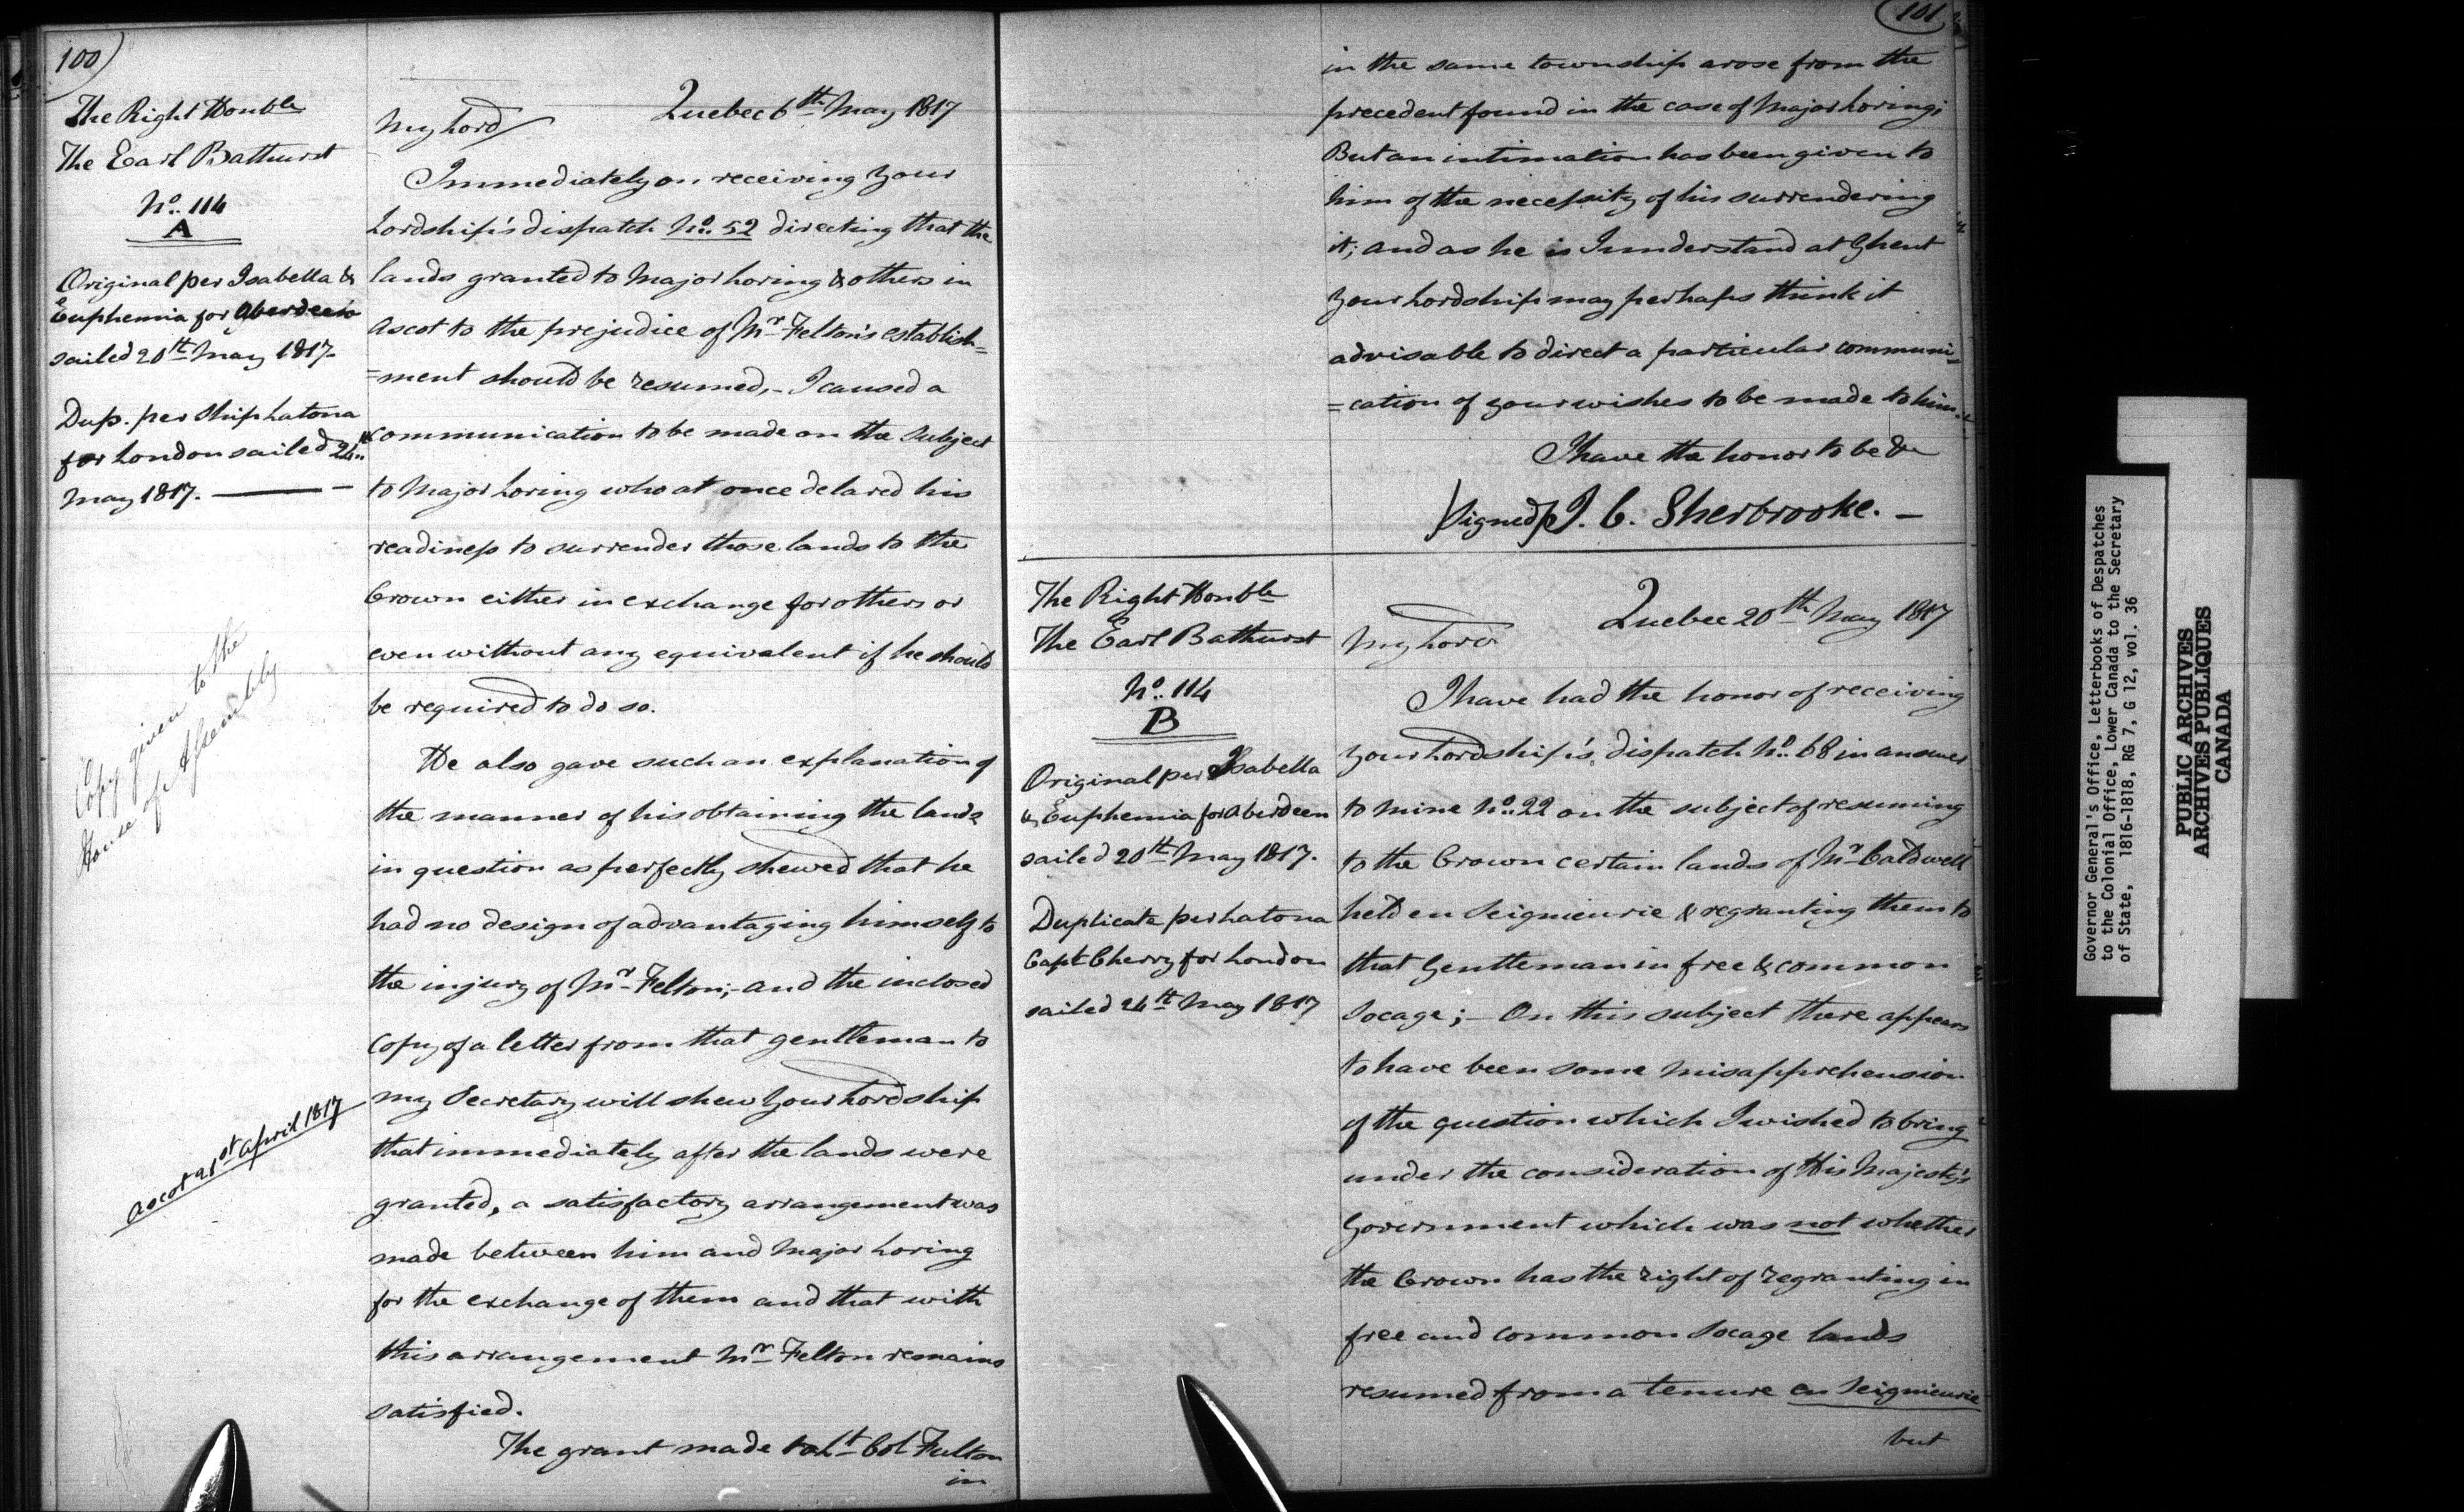 100)
The Right Honble
The Earl Bathurst
No. 114
A
Original per Isabella &
Euphemia for Aberdeen
sailed 20th May 1817.
Dup. per Ship Latona
for London sailed 24th
May 1817.
Copy given to the
House of Assembly
Ascot 21st April 1817
Quebec 6th May 1817
My Lord
Immediately on receiving Your
Lordship's dispatch No. 52 directing that the
lands granted to Major Loring & others in
Ascot to the prejudice of Mr Felton's establish=
=ment should be resumed,- I caused a
communication to be made on the subject
to Major Loring who at once delared his
readiness to surrender those lands to the
Crown either in exchange for others or
even without any equivalent if he should
be required to do so.
He also gave such an explanation of
the manner of his obtaining the lands
in question as perfectly shewed that he
had no design of advantaging himself to
the injury of Mr Felton;- and the inclosed
Copy of a letter from that gentleman to
my Secretary will shew Your Lordship
that immediately after the lands were
granted, a satisfactory arrangement was
made between him and Major Loring
for the exchange of them and that with
this arrangement Mr Felton remains
satisfied.
The grant made to Lt Col Fulton
in
101
in the same township arose from the
precedent found in the case of Major Loring;
But an intimation has been given to
him of the necessity of his surrendering
it; and as he is I understand at Ghent
Your Lordship may perhaps think it
advisable to direct a particular communi=
=cation of your wishes to be made to him.
I have the honor to be &c
(Signed) J. C. Sherbrooke. -
The Right Honble
The Earl Bathurst
No. 114
B
Original per Isabella
& Euphemia for Aberdeen
sailed 20th May 1817.
Duplicate per Latona
Capt Cherry for London
sailed 24th May 1817
Quebec 20th May 1817
My Lord
I have had the honor of receiving
Your Lordship's dispatch No. 68 in answer
to mine No. 22 on the subject of resuming
to the Crown certain lands of Mr Caldwell
held en Seignieurie & regranting them to
that Gentleman in free & common
Socage; - On this subject there appears
to have been some misapprehension
of the question which I wished to bring
under the consideration of His Majesty's
Government which was not whether
the Crown has the right of regranting in
free and common Socage lands
resumed from a tenure en Seignieurie
but
Governor General's Office, Letterbooks of Despatches
to the Colonial Office, Lower Canada to the Secretary
of State, 1816-1818, RG 7, G 12, vol. 36
PUBLIC ARCHIVES
ARCHIVES PUBLIQUES
CANADA